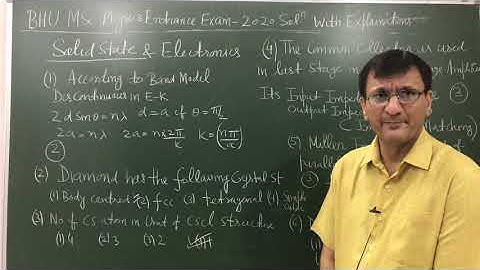 BHU MSc Physics Entrance Exam-2020 Solⁿ With Explanations
Solid State & Electronics
(1) According to Band Model
Discontinuous in E-K
2d sinθ = nλ d = a if θ = π/2
2a = nλ 2a = n x 2π/K K = (nπ/a)
(2)
(2) Diamond has the following Crystal St
(1) Body centred (2) fcc (3) tetragonal (4) Simple
(3) No of Cs atom in Unit of CsCl structure
(1) 4 (2) 3 (3) 2
(4) The Common Collector is used
in last Stage
Its Input Impe
Output Imped
(3)
(5) Miller
(3)
(6)
(1)